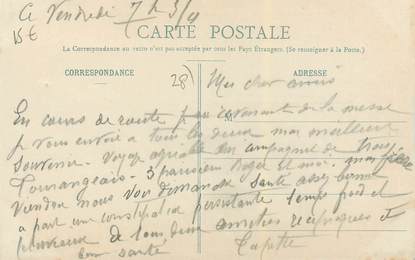 Ce Vendredi 7 h 3/4
15€
CARTE POSTALE
La Correspondance au verso n'est pas acceptée par tous les Pays Étrangers. (Se renseigner à la Poste.)
CORRESPONDANCE
ADRESSE
28)
Mes cher amis
M
En cours de route de la messe
je vous envoie a tous les deux mes meilleurs
Souvenir - Voyage agréable en compagnie de trois
Tourangeais - 3 parisiens Roger et moi.
Viendra nous Santé assez bonne
a part une constipation persistante temps froid et
pluvieux de tous deux amities réciproques et
bon santé